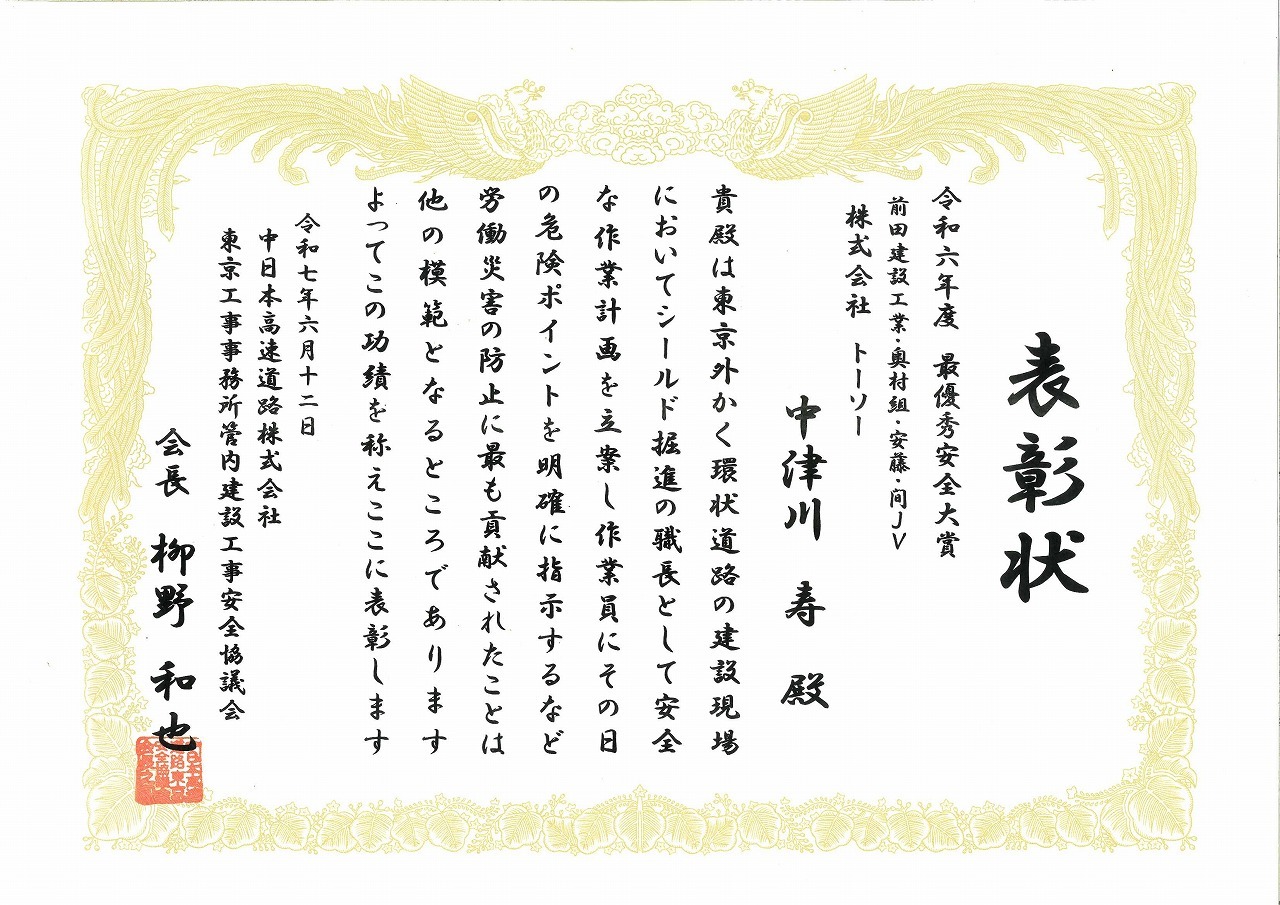 表彰状
令和六年度　最優秀安全大賞
前田建設工業・奥村組・安藤・间JV
株式会社　トーソー
中津川　寿　殿
貴殿は東京外かく環状道路の建設現場
においてシールド掘進の職長として安全
な作業計画を立案し作業員にその日
の危険ポイントを明確に指示するなど
労働災害の防止に最も貢献されたことは
他の模範となるところであります
よってこの功績を称えここに表彰します
令和七年六月十二日
中日本高速道路株式会社
東京工事事務所管内建設工事安全協議会
会長　柳野　和也